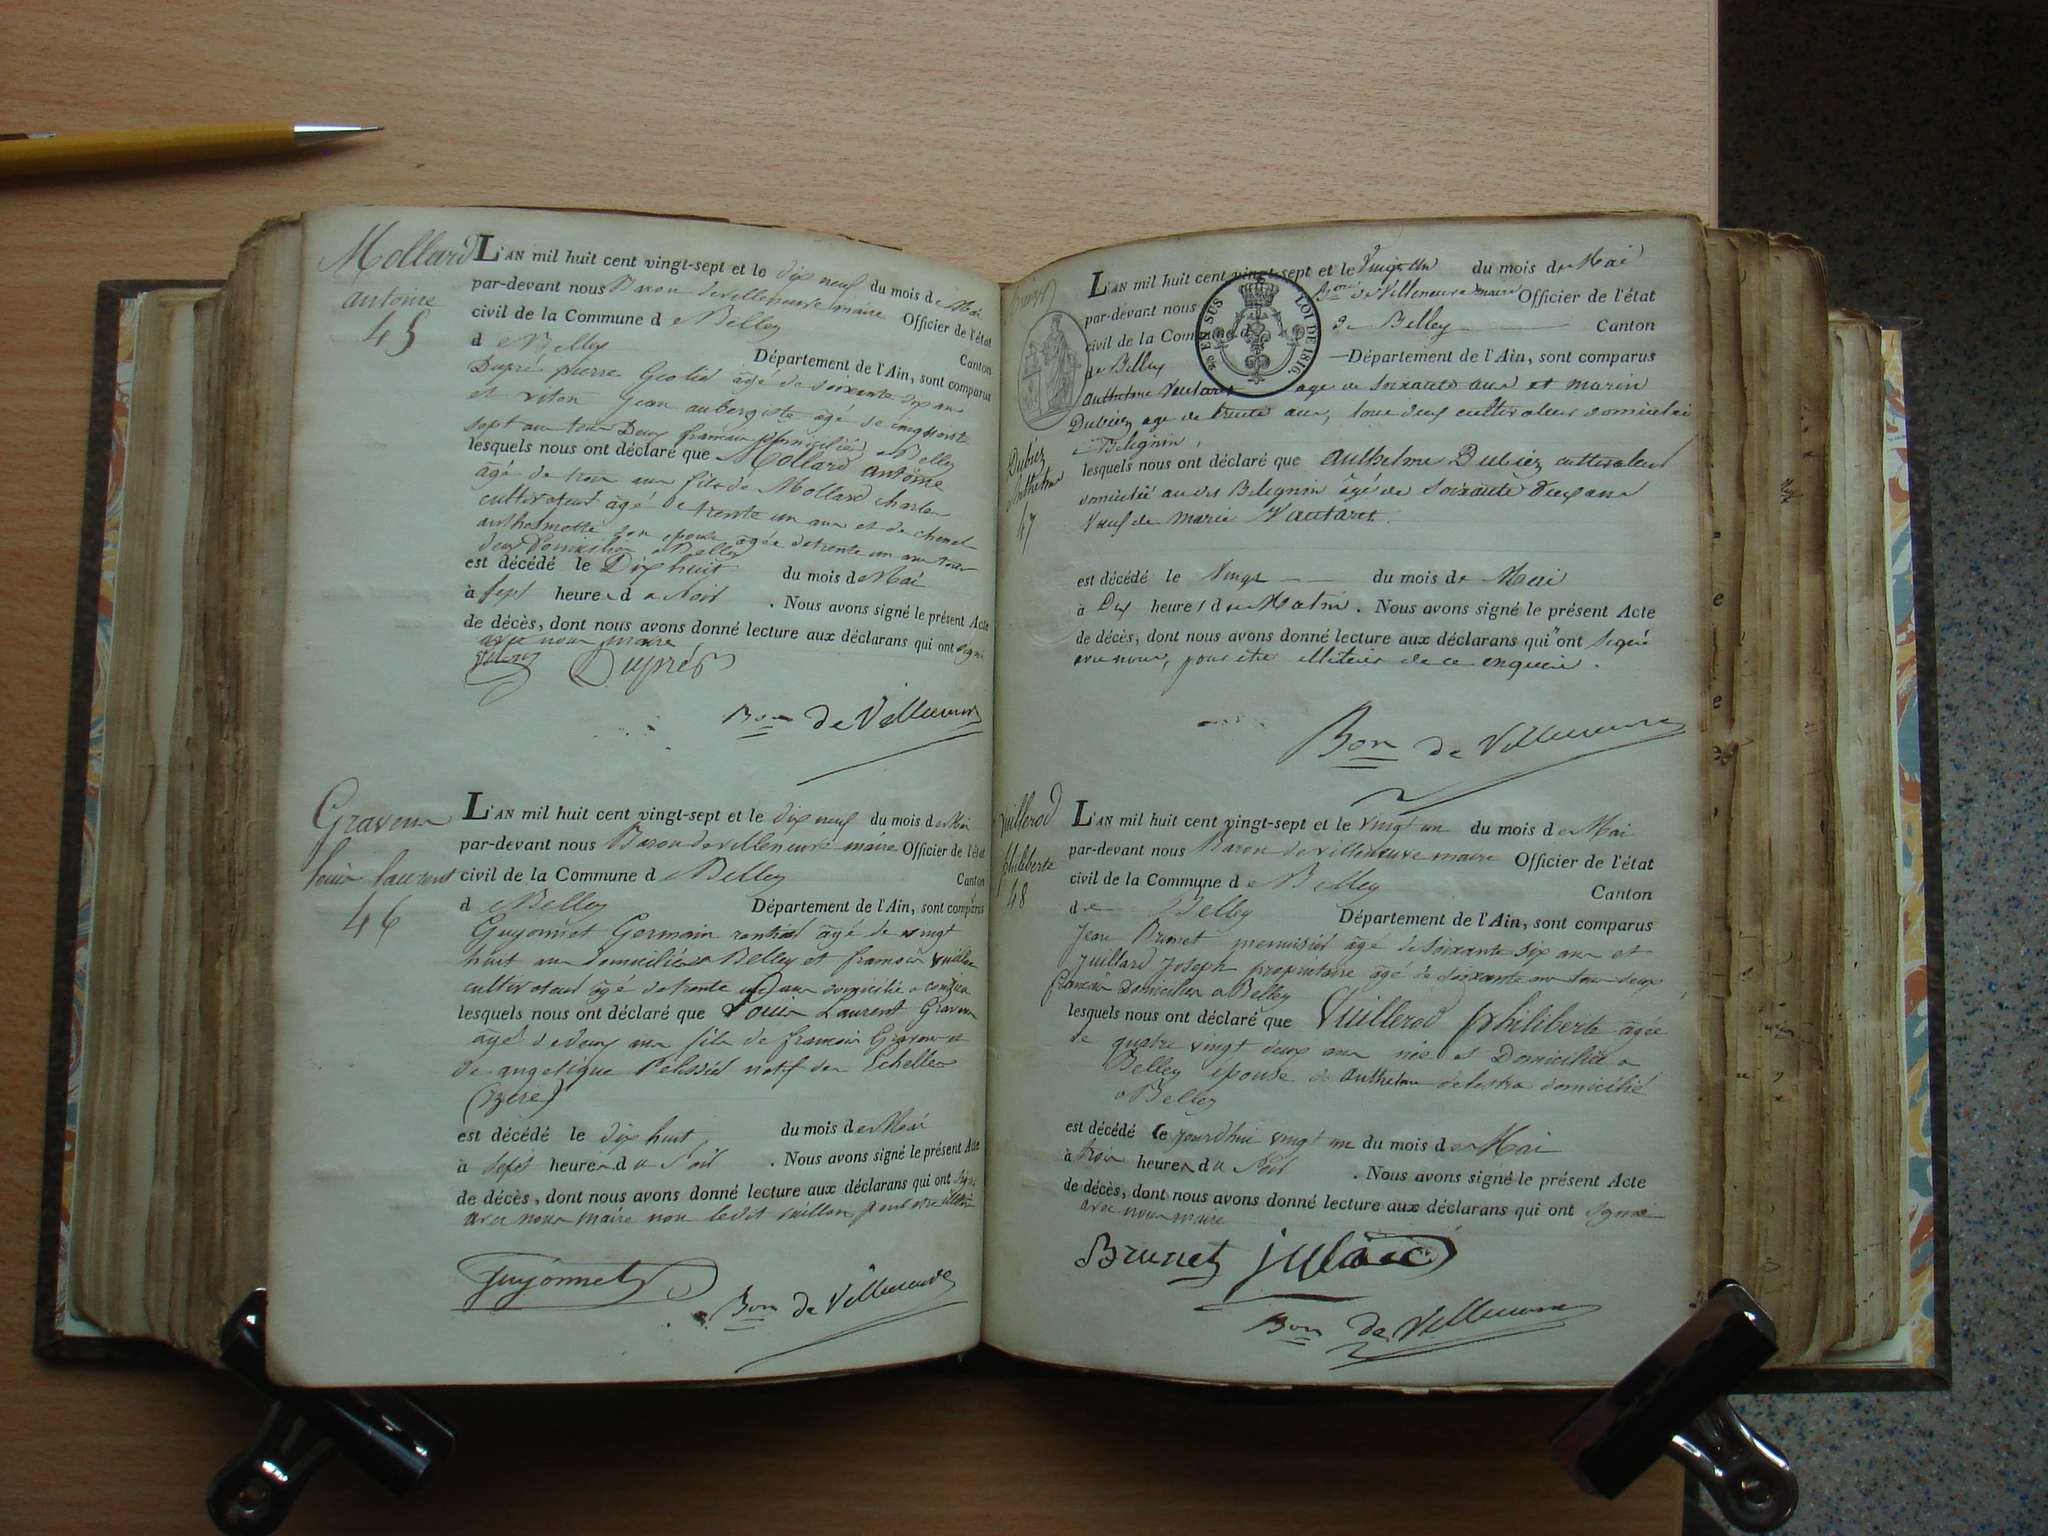 Mollard
antoine
45
L'AN mil huit cent vingt-sept et le dix neuf du mois de Mai
par-devant nous Baron de villeneuve maire Officier de l'état
civil de la Commune de Belley Canton
de Belley Département de l'Ain, sont comparus
Dupré pierre Geolier âgé de soixante dix ans
et viton Jean aubergiste âgé de cinquante
sept ans tous Deux francais domiciliés a Belley
lesquels nous ont déclaré que Mollard Antoine
âgé de trois ans fils de Mollard charles
cultivateur âgé de trente un ans et de chenel
anthelmette son epouse âgée de trente un ans tous
deux Domiciliés a Belley
est décédé le Dix huit du mois de Mai
à sept heures du soir. Nous avons signé le présent Acte
de décès, dont nous avons donné lecture aux déclarans qui ont signé
avec nous maire
Viton Dupré
Bon de Villeneuve
Graven
louis laurent
46
L'AN mil huit cent vingt-sept et le dix neuf du mois de Mai
par-devant nous Baron de villeneuve maire Officier de l'état
civil de la Commune de Belley Canton
de Belley Département de l'Ain, sont comparus
Guyonnet Germain rentier âgé de vingt
huit ans domicilié a Belley et francois
cultivateur âgé de trente ans domicilié a
lesquels nous ont déclaré que Louis Laurent Graven
âgé de deux ans fils de francois Graven et
de angelique Pelissier natif des Echelles
(Izere)
est décédé le dix huit du mois de Mai
à sept heures du soir. Nous avons signé le présent Acte
de décès, dont nous avons donné lecture aux déclarans qui ont signé
avec nous maire non ledit pour etre illitéré
Guyonnet
Bon de Villeneuve
Dubiez
Anthelme
47
L'AN mil huit cent vingt-sept et le Vingt un du mois de Mai
par-devant nous Bon de Villeneuve maire Officier de l'état
civil de la Commune de Belley Canton
de Belley Département de l'Ain, sont comparus
LOI DE 1816.
EN SUS
Anthelme Vautaret age de soixante ans et marin
Dubiez age de trente ans, tous deux cultivateurs domiciliés
a Belignin,
lesquels nous ont déclaré que Anthelme Dubiez cultivateur
domicilié audit Belignin âgé de soixante deux ans
Veuf de marie Vautaret.
est décédé le Vingt du mois de Mai
à Dix heures du Matin. Nous avons signé le présent Acte
de décès, dont nous avons donné lecture aux déclarans qui ont signé
avec nous, pour etre illiterés de ce enquis.
Bon de Villeneuve
Vuillerod
philiberte
48
L'AN mil huit cent vingt-sept et le vingt un du mois de Mai
par-devant nous Baron de villeneuve maire Officier de l'état
civil de la Commune de Belley Canton
de Belley Département de l'Ain, sont comparus
Jean Brunet menuisier âgé de soixante six ans et
Juillard Joseph propriétaire âgé de soixante ans tous deux
francais Domiciliés a Belley
lesquels nous ont déclaré que Vuillerod philiberte âgée
de quatre vingt deux ans née et Domiciliée a
Belley epouse de Anthelme delestra domicilié
a Belley
est décédé ce jourdhui vingt un du mois de Mai
à trois heures du soir. Nous avons signé le présent Acte
de décès, dont nous avons donné lecture aux déclarans qui ont signé
avec nous maire
Brunet julard
Bon de Villeneuve